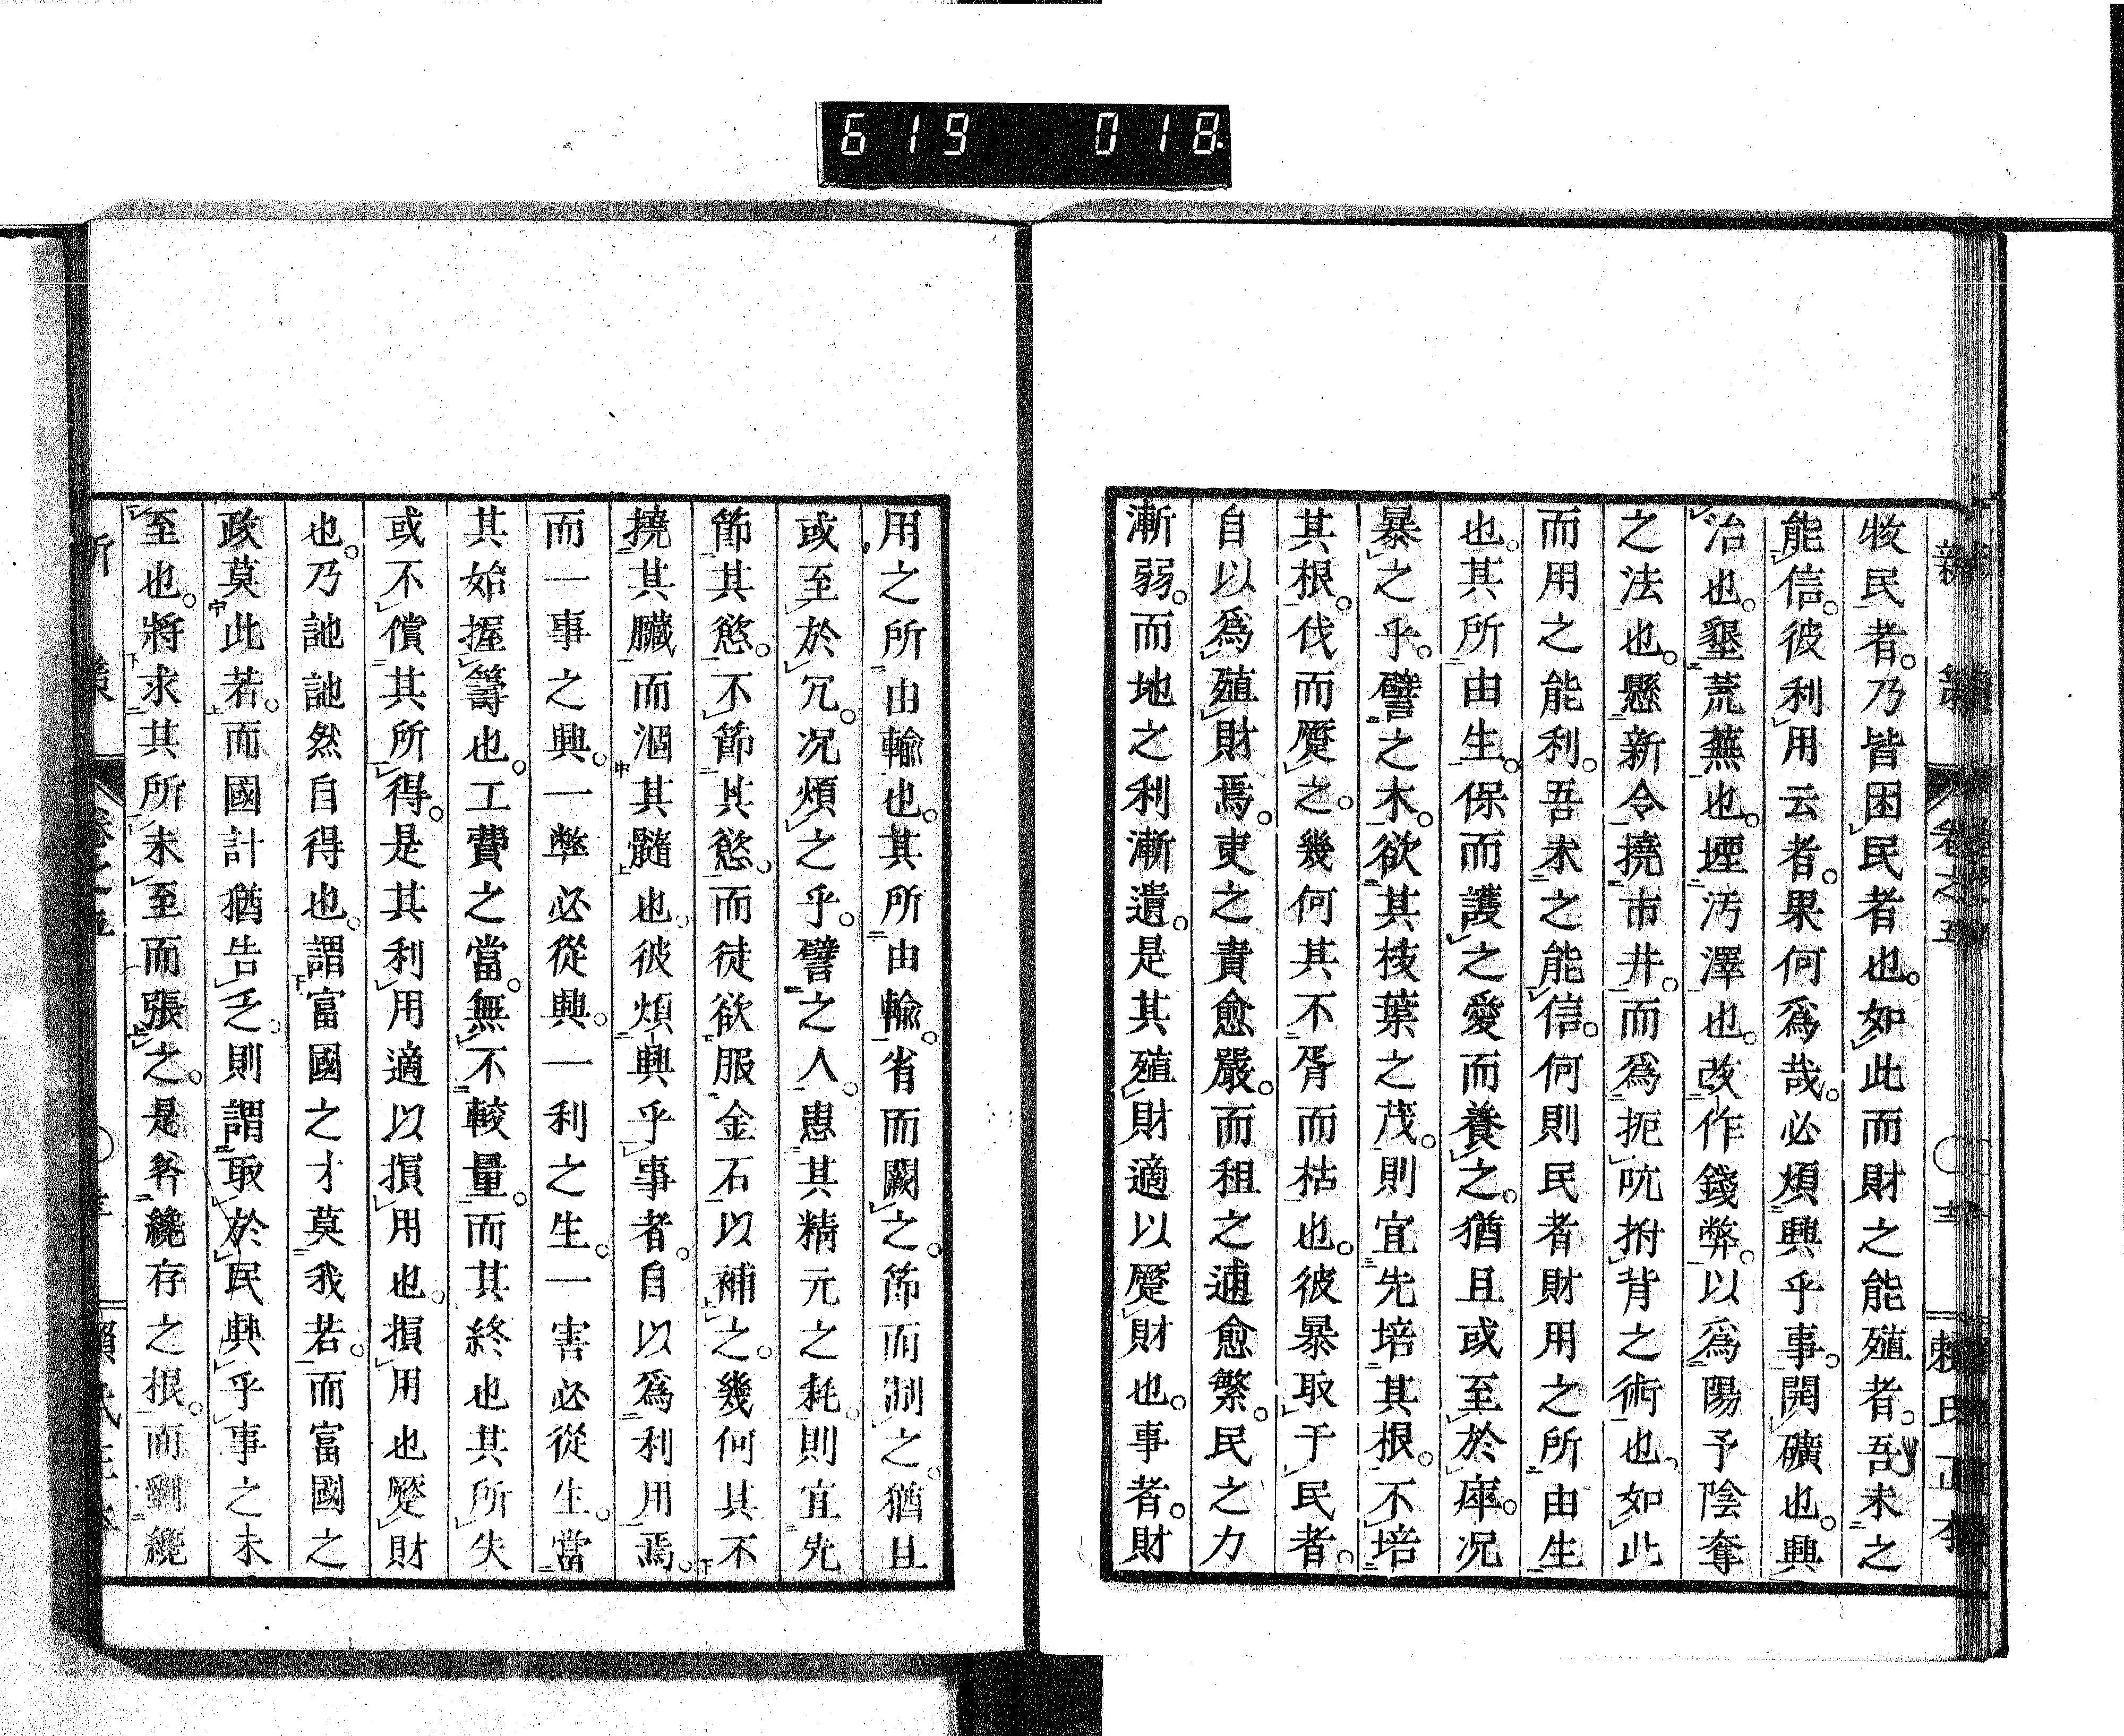 619 018
新策 卷之五 賴氏正本
牧民者。乃皆困民者也。如此而財之能殖者。吾未之
能信。彼利用云者。果何爲哉。必煩興乎事。開礦也。興
冶也。墾荒蕪也。堙汚澤也。改作錢弊。以爲陽予陰奪
之法也。懸新令撓市井。而爲扼吭拊背之術也。如此
而用之能利。吾未之能信。何則民者財用之所由生
也。其所由生。保而護之愛而養之。猶且或至於瘁。况
暴之乎。譬之木。欲其枝葉之茂。則宜先培其根。不培
其根。伐而蹷之。幾何其不胥而枯也。彼暴取于民者。
自以爲殖財焉。吏之責愈嚴。而租之逋愈繁。民之力
漸弱。而地之利漸遺。是其殖財適以蹷財也。事者。財
用之所由輸也。其所由輸。省而闕之。節而制之。猶且
或至於冗。况煩之乎。譬之人。患其精元之耗。則宜先
節其慾。不節其慾。而徒欲服金石以補之。幾何其不
撓其臟而涸其髓也。彼煩興乎事者。自以爲利用焉。
而一事之興。一弊必從興。一利之生。一害必從生。當
其始握籌也。工費之當。無不較量。而其終也其所失
或不償其所得。是其利用適以損用也。損用也蹷財
也。乃訑訑然自得也。謂富國之才莫我若。而富國之
政莫此若。而國計猶告乏。則謂取於民興乎事之未
至也。將求其所未至而張之。是咎纔存之根。而劚纔